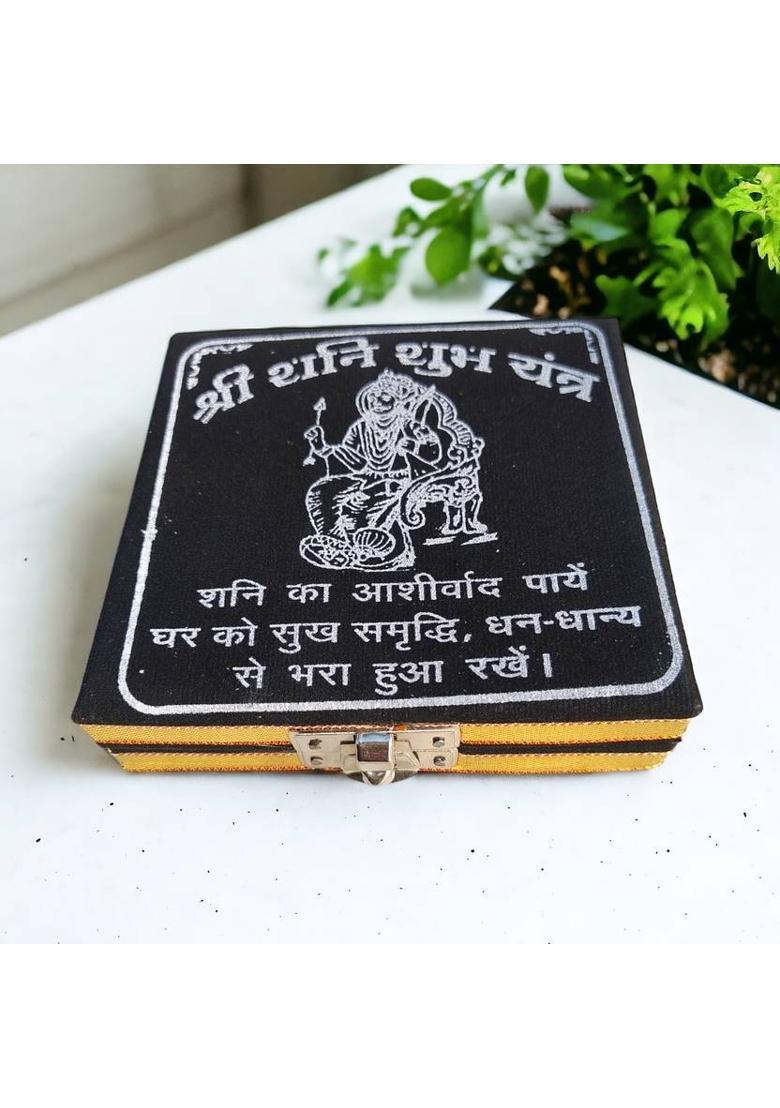 श्री शनि शुभ यंत्र
शनि का आशीर्वाद पायें
घर को सुख समृद्धि, धन-धान्य
से भरा हुआ रखें।